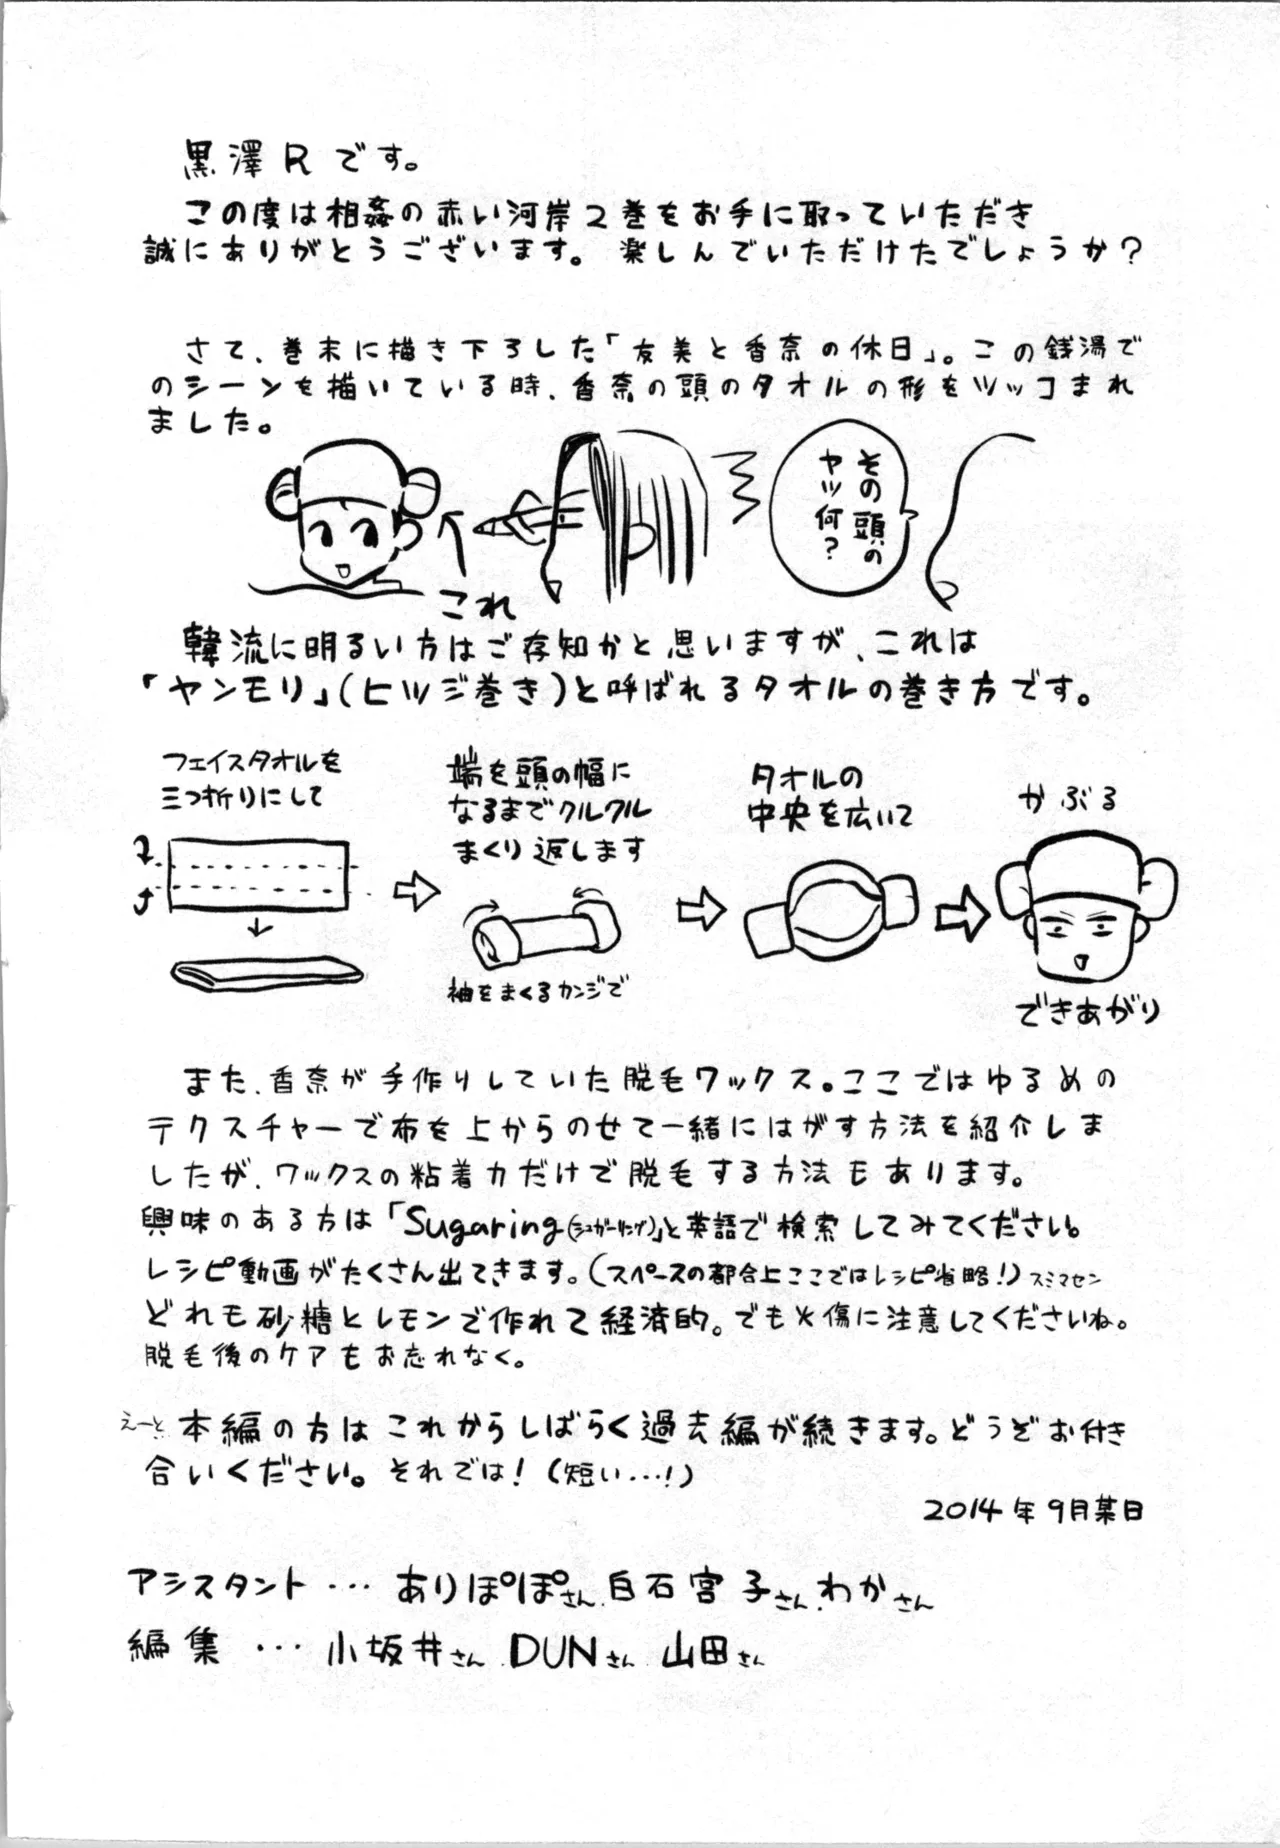 黒澤Rです。
この度は相姦の赤い河岸2巻をお手に取っていただき
誠にありがとうございます。楽しんでいただけたでしょうか?
さて、巻末に描き下ろした「友美と香奈の休日」。この銭湯で
のシーンを描いている時、香奈の頭のタオルの形をツッコまれ
ました。
その頭の
ヤツ何?
これ
韓流に明るい方はご存知かと思いますが、これは
「ヤンモリ」(ヒツジ巻き)と呼ばれるタオルの巻き方です。
フェイスタオルを
三つ折りにして
端を頭の幅に
なるまでクルクル
まくり返します
袖をまくるカンジで
タオルの
中央を広いて
かぶる
できあがり
また、香奈が手作りしていた脱毛ワックス。ここではゆるめの
テクスチャーで布を上からのせて一緒にはがす方法を紹介しま
したが、ワックスの粘着力だけで脱毛する方法もあります。
興味のある方は「Sugaring(シュガーリング)」と英語で検索してみてください。
レシピ動画がたくさん出てきます。(スペースの都合上ここではレシピ省略!)スミマセン
どれも砂糖とレモンで作れて経済的。でも火傷に注意してくださいね。
脱毛後のケアもお忘れなく。
えーと本編の方はこれからしばらく過去編が続きます。どうぞお付き
合いください。それでは!(短い…!)
2014年9月某日
アシスタント…ありぽぽさん、白石宮子さん、わかさん
編集…小坂井さん、DUNさん、山田さん